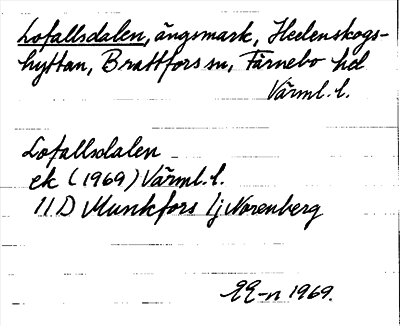 Lofallsdalen, ängsmark, Hedenskogs-
hyttan, Brattfors sn, Färnebo hd
Värml. l.
Lofallsdalen
ek (1969) Värml. l.
11D Munkfors 1j Norenberg
EE-n 1969.